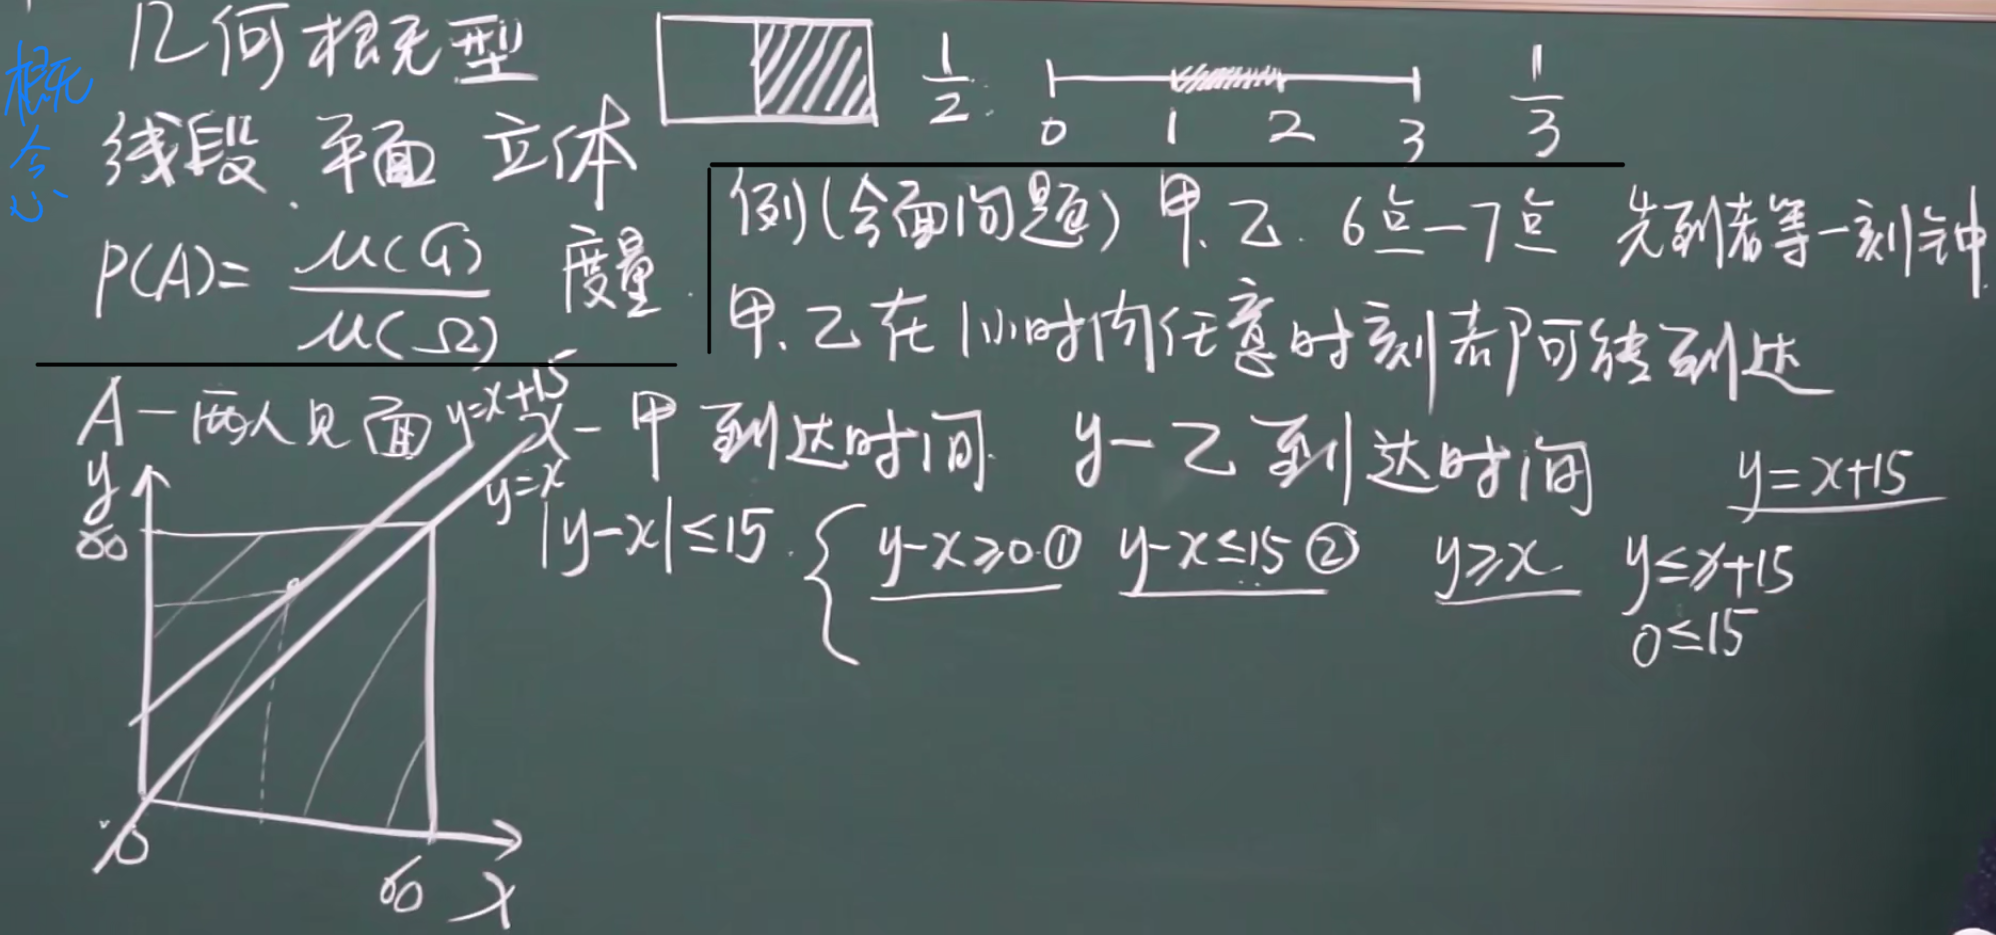 概念
几何概型
线段、平面 立体
P(A)= μ(G)/μ(Ω) 度量
1/2
0 1 2 3
1/3
例(会面问题) 甲、乙. 6点—7点 先到者等一刻钟
甲、乙在1小时内任意时刻都可能到达
A—两人见面 x—甲到达时间. y—乙到达时间
|y-x|≤15. { y-x≥0.① y-x≤15② y≥x. y≤x+15
0≤15
y=x+15
y=x+15
y=x
y
60
0
60 x